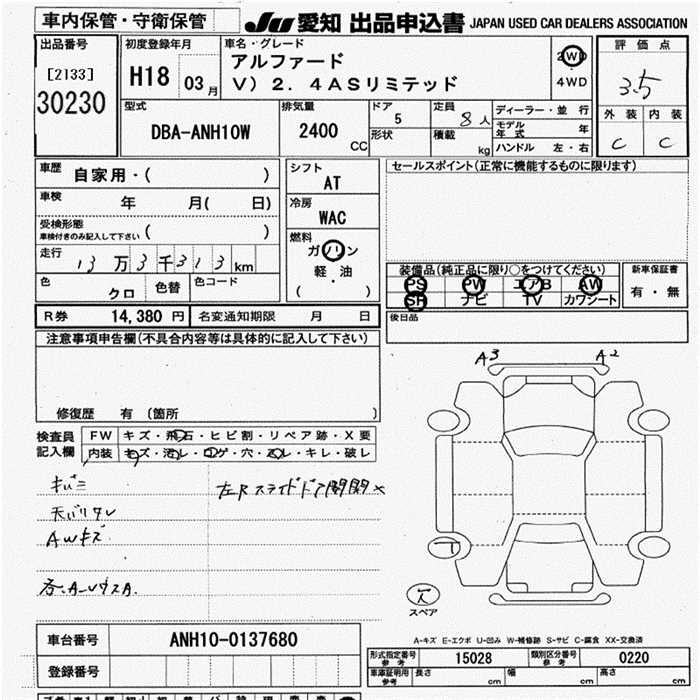 車内保管・守衛保管
JU 愛知 出品申込書 JAPAN USED CAR DEALERS ASSOCIATION
出品番号
[2133]
30230
初度登録年月
H18 03 月
車名・グレード
アルファード
V) 2. 4ASリミテッド
2WD
4WD
評価点
3.5
外装 内装
C C
型式
DBA-ANH10W
排気量
2400 CC
ドア
5
形状
定員
8 人
積載
kg
ディーラー・並行
モデル年式 年
ハンドル 左・右
車歴
自家用・( )
車検
年 月( 日)
受検形態
車検付きのみ記入して下さい ( )
走行
13 万 3 千 313 km
色
クロ
色替
色コード
シフト
AT
冷房
WAC
燃料
ガソリン
軽・油
( )
セールスポイント(正常に機能するものに限ります)
装備品(純正品に限り○をつけてください)
PS PW エアB AW
SR ナビ TV カワシート
新車保証書
有・無
R券 14,380 円 名変通知期限 月 日
後日品
注意事項申告欄(不具合内容等は具体的に記入して下さい)
修復歴 有 (箇所 )
検査員記入欄
FW キズ・飛石・ヒビ割・リペア跡・X要
内装 キズ・汚レ・コゲ・穴・スレ・キレ・破レ
左Rスライドドア開閉×
AWキズ
A3 A2
スペア
A-キズ E-エクボ U-凹み W-補修跡 S-サビ C-腐食 XX-交換済
車台番号 ANH10-0137680
登録番号
形式指定番号 参考 15028 類別区分番号 参考 0220
車庫証明用 参考 長さ cm 幅 cm 高さ cm